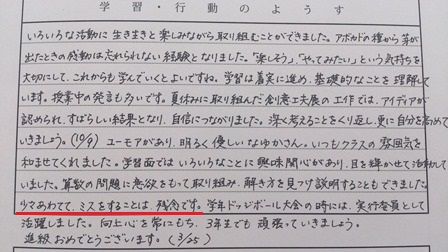 学習・行動のようす
いろいろな活動に生き生きと楽しみながら取り組むことができました。アボカドの種から芽が
出たときの感動は忘れられない経験となりました。「楽しそう」「やってみたい」という気持ちを
大切にして、これからも学んでいくとよいですね。学習は着実に進め、基礎的なことを理解して
います。授業中の発言も多いです。夏休みに取り組んだ創意工夫展の工作では、アイディアが
認められ、すばらしい結果となり、自信につながりました。深く考えることをくり返し、更に自分を高めて
いきましょう。(10/9) ユーモアがあり、明るく優しいなゆかさん。いつもクラスの雰囲気を
和ませてくれました。学習面ではいろいろなことに興味関心があり、目を輝かせて活動して
いました。算数の問題に意欲をもって取り組み、解き方を見つけ説明することもできました。
少々あわてて、ミスをすることは、残念です。学年ドッジボール大会の時には、実行委員として
活躍しました。向上心を常にもち、3年生でも頑張っていきましょう。
進級おめでとうございます。(3/25)